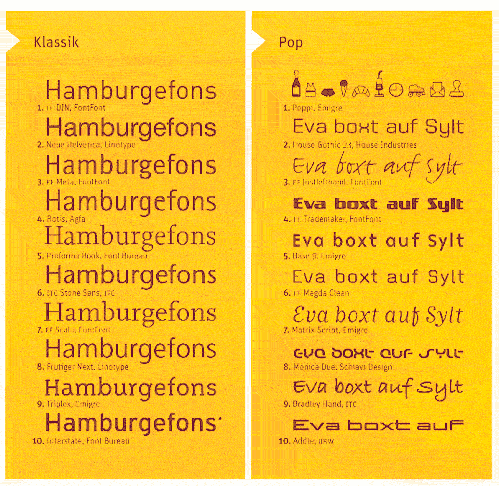 Klassik
Hamburgefons
1. FF DIN, FontFont
Hamburgefons
2. Neue Helvetica, Linotype
Hamburgefons
3. FF Meta, FontFont
Hamburgefons
4. Rotis, Agfa
Hamburgefons
5. Proforma Book, Font Bureau
Hamburgefons
6. ITC Stone Sans, ITC
Hamburgefons
7. FF Scala, FontFont
Hamburgefons
8. Frutiger Next, Linotype
Hamburgefons
9. Triplex, Emigre
Hamburgefons
10. Interstate, Font Bureau
Pop
1. Poppi, Emigre
Eva boxt auf Sylt
2. House Gothic 23, House Industries
Eva boxt auf Sylt
3. FF Justlefthand, FontFont
Eva boxt auf Sylt
4. FF Trademaker, FontFont
Eva boxt auf Sylt
5. Base 9, Emigre
Eva boxt auf Sylt
6. FF Magda Clean
Eva boxt auf Sylt
7. Matrix Script, Emigre
Eva boxt auf Sylt
8. Monica Due, Design
Eva boxt auf Sylt
9. Bradley Hand, ITC
Eva boxt auf
10. URW